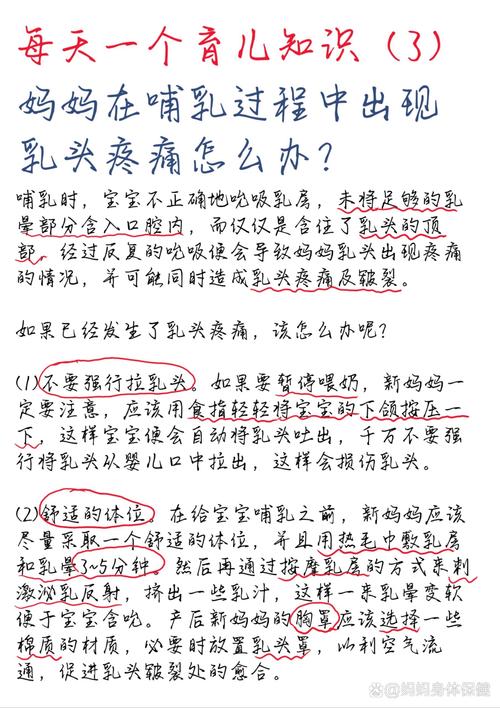 每天一个育儿知识（3）
妈妈在哺乳过程中出现
乳头疼痛怎么办？
哺乳时，宝宝不正确地吮吸乳房，未将足够的乳
晕部分含入口腔内，而仅仅是含住了乳头的顶
部。经过反复的吮吸便会导致妈妈乳头出现疼痛
的情况，并可能同时造成乳头疼痛及皲裂。
如果已经发生了乳头疼痛，该怎么办呢？
(1)不要强行拉乳头。如果要暂停喂奶，新妈妈一
定要注意，应该用食指轻轻将宝宝的下颌按压一
下，这样宝宝便会自动将乳头吐出，千万不要强
行将乳头从婴儿口中拉出，这样会损伤乳头。
(2)舒适的体位。在给宝宝哺乳之前，新妈妈应该
尽量采取一个舒适的体位，并且用热毛巾敷乳房
和乳晕3~5分钟。然后再通过按摩乳房的方式来刺
激泌乳反射，挤出一些乳汁，这样一来乳晕变软
便于宝宝含吮。产后新妈妈的胸罩应该选择一些
棉质的材质，必要时放置乳头罩，以利空气流
通，促进乳头皲裂处的愈合。
@妈妈身体保健